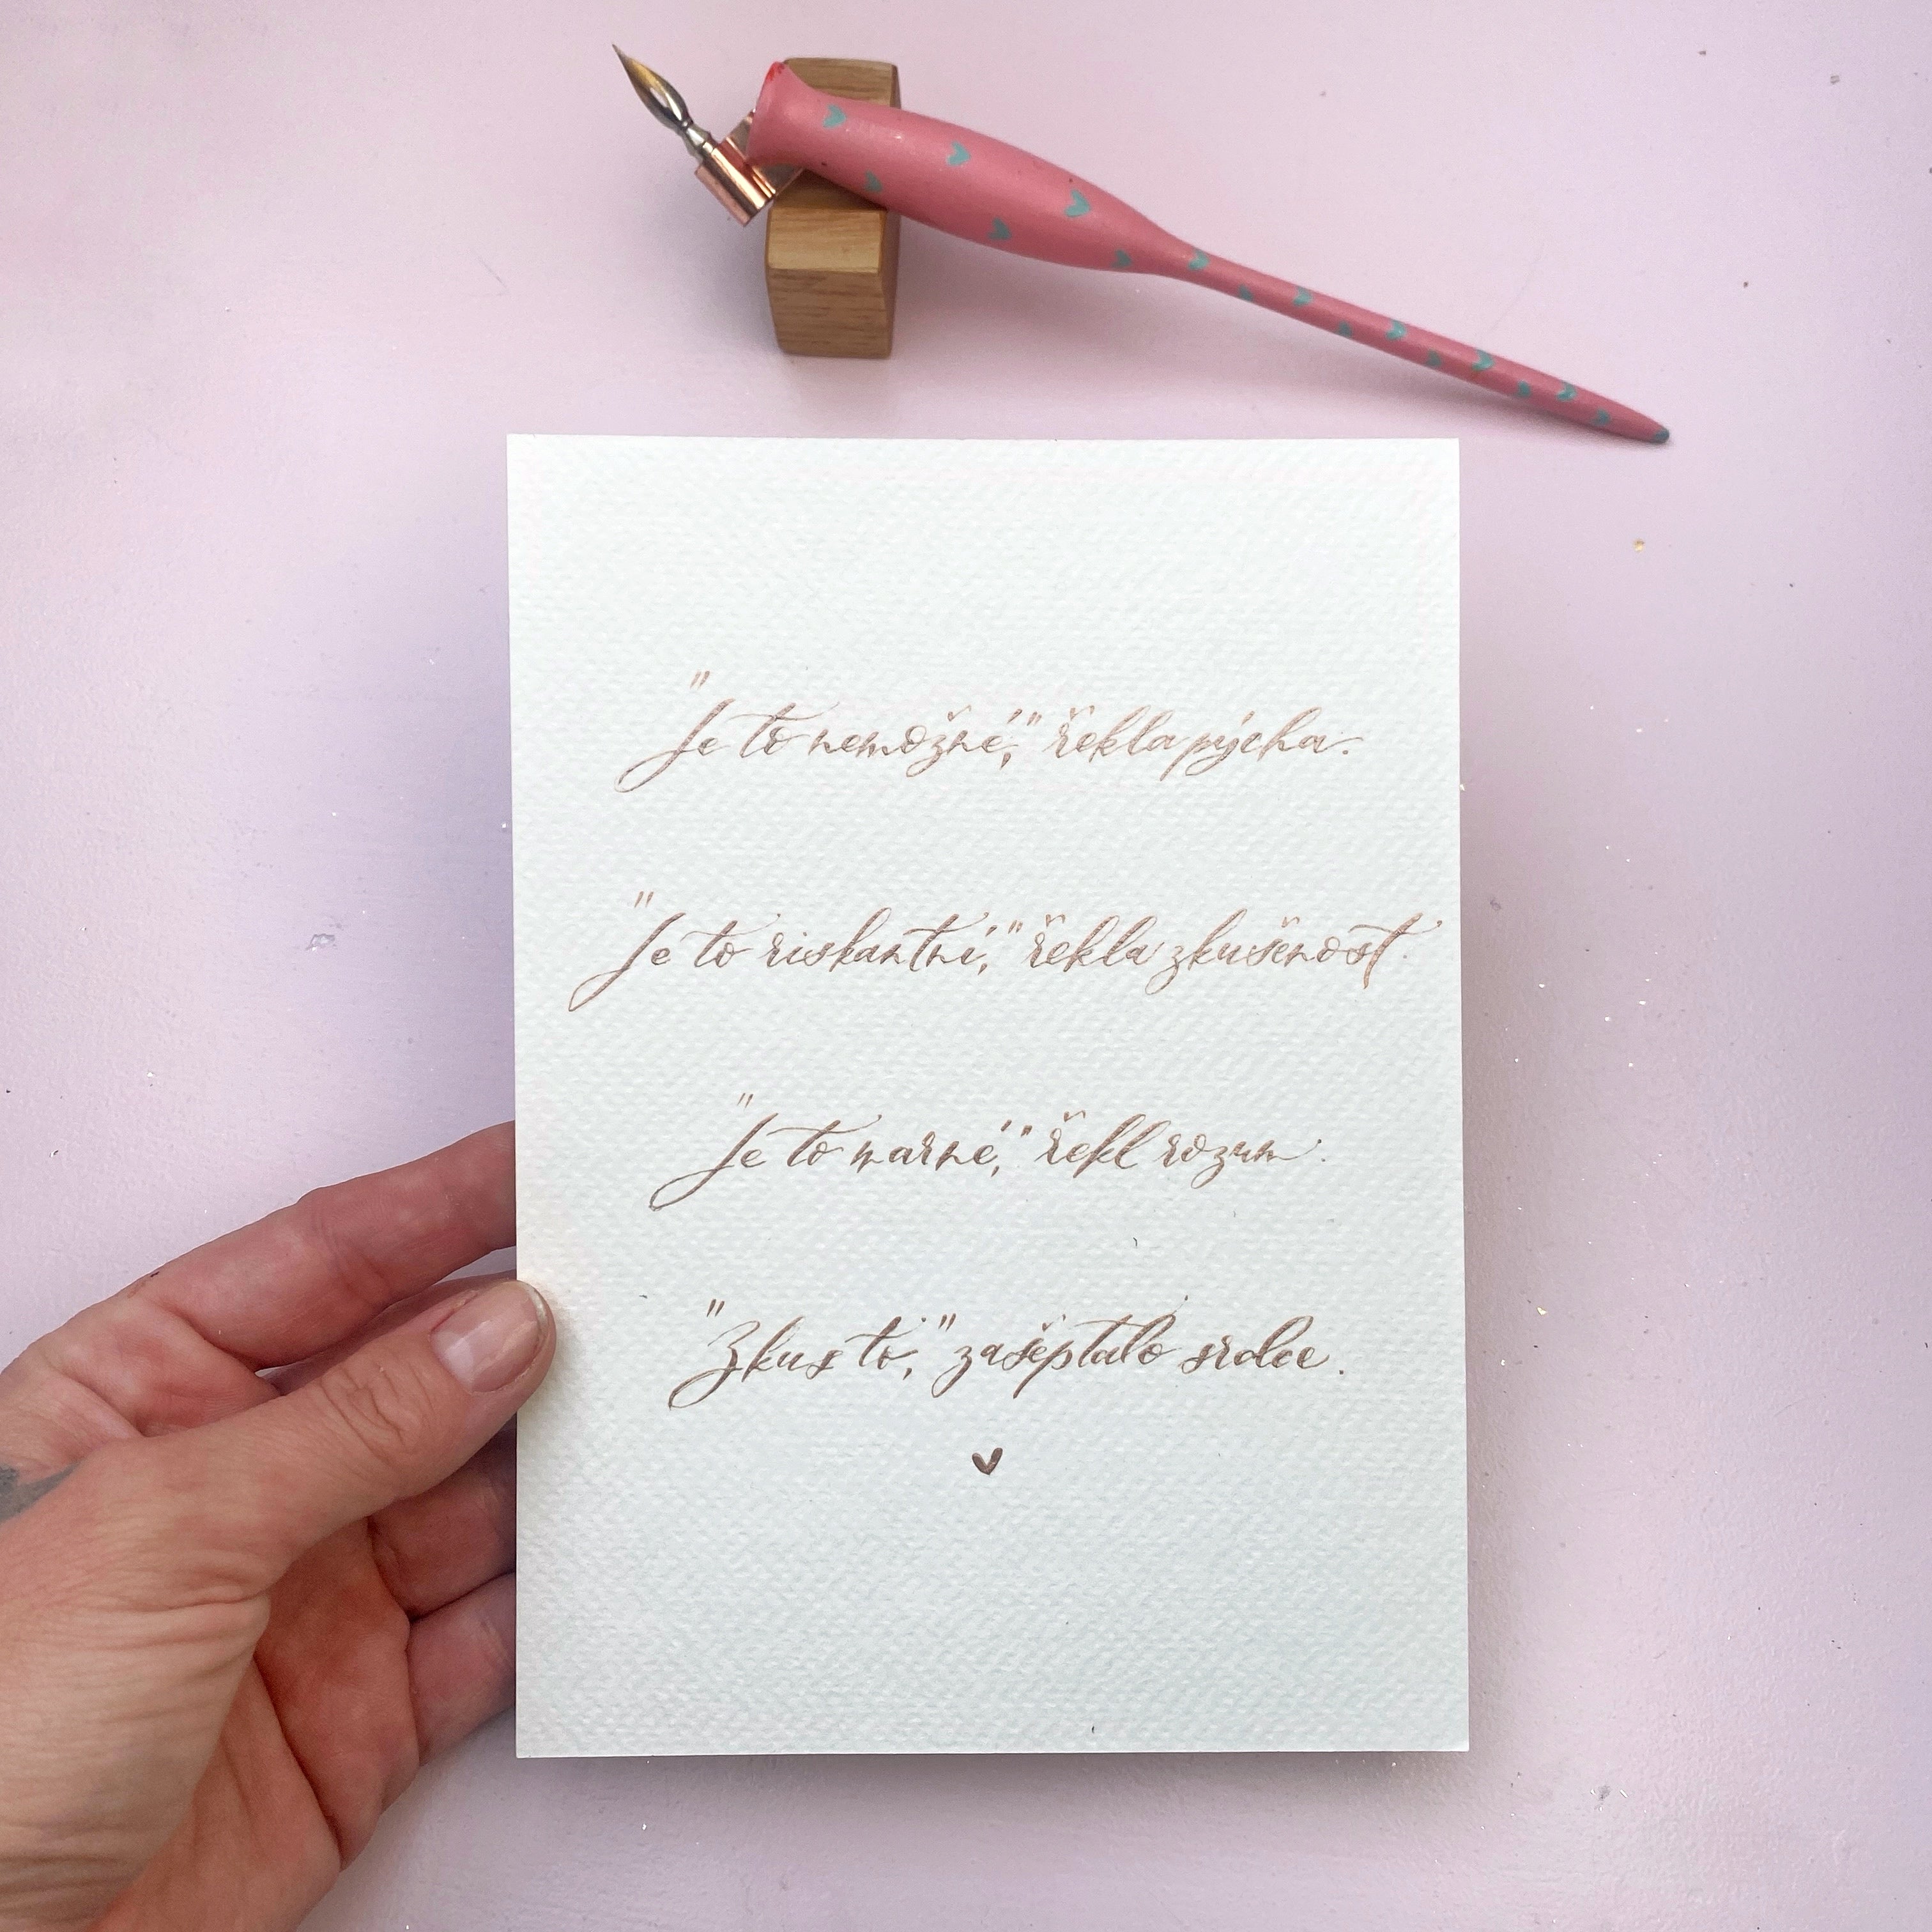 "Je to nemožné," řekla pýcha.
"Je to riskantní," řekla zkušenost.
"Je to marné," řekl rozum.
"Zkus to," zašeptalo srdce.